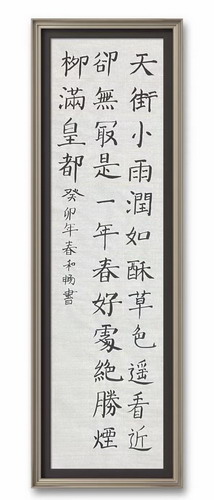 天街小雨潤如酥草色遥看近
卻無㝡是一年春好處絶勝煙
柳滿皇都
癸卯年春和暢書